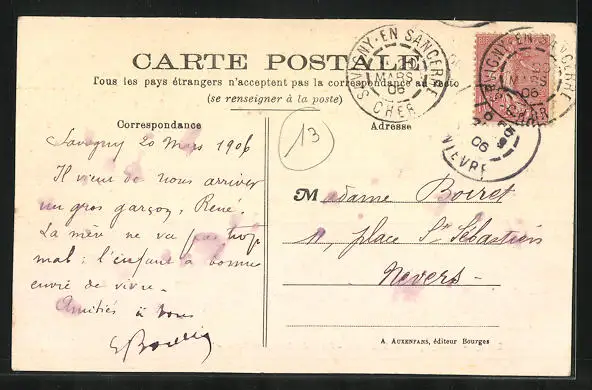 CARTE POSTALE
Tous les pays étrangers n'acceptent pas la correspondance au recto
(se renseigner à la poste)
SAVIGNY-EN SANCERRE
MARS
06
CHER
SAVIGNY-EN SANCERRE
MARS
06
CHER
06
NIEVRE
13
Correspondance
Adresse
Savigny 20 Mars 1906
Il vient de nous arriver
un gros garçon, René.
La mère ne va pas trop
mal : l'enfant a bonne
envie de vivre.
Amitiés à vous
Madame Boiret
11, place St Sébastien
Nevers -
A. AUXENFANS, éditeur Bourges